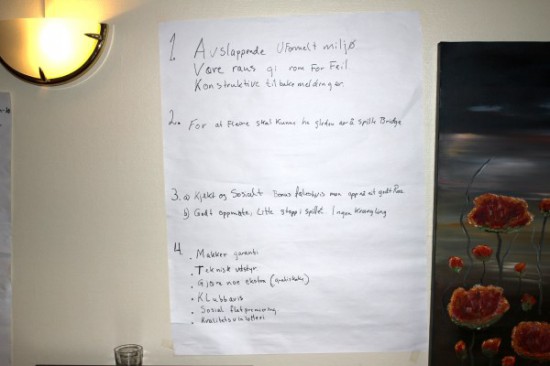 1. Avslappende Uformelt miljø
Være raus gi rom For Feil
Konstruktive tilbakemeldinger.
2. For at Flere skal Kunne ha gleden av å spille Bridge
3. a) Kjekt og Sosialt Bonus
b) Godt oppmøte, Litt stopp i spillet. Ingen Krangling
4.
. Makker garanti
. Teknisk utstyr
. Gjøre noe ekstra
. Klubbavis
. Sosial
. Kvalitets